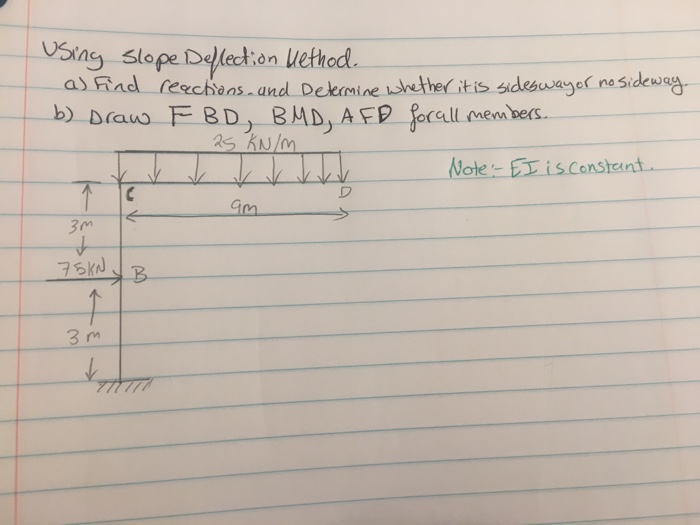 Using Slope Deflection Method.
a) Find reections. and Determine whether it is sidesway or no sideway.
b) Draw FBD, BMD, AFD for all members.
25 KN/m
Note:- EI is constant.
C
D
9m
3m
75KN
B
3m